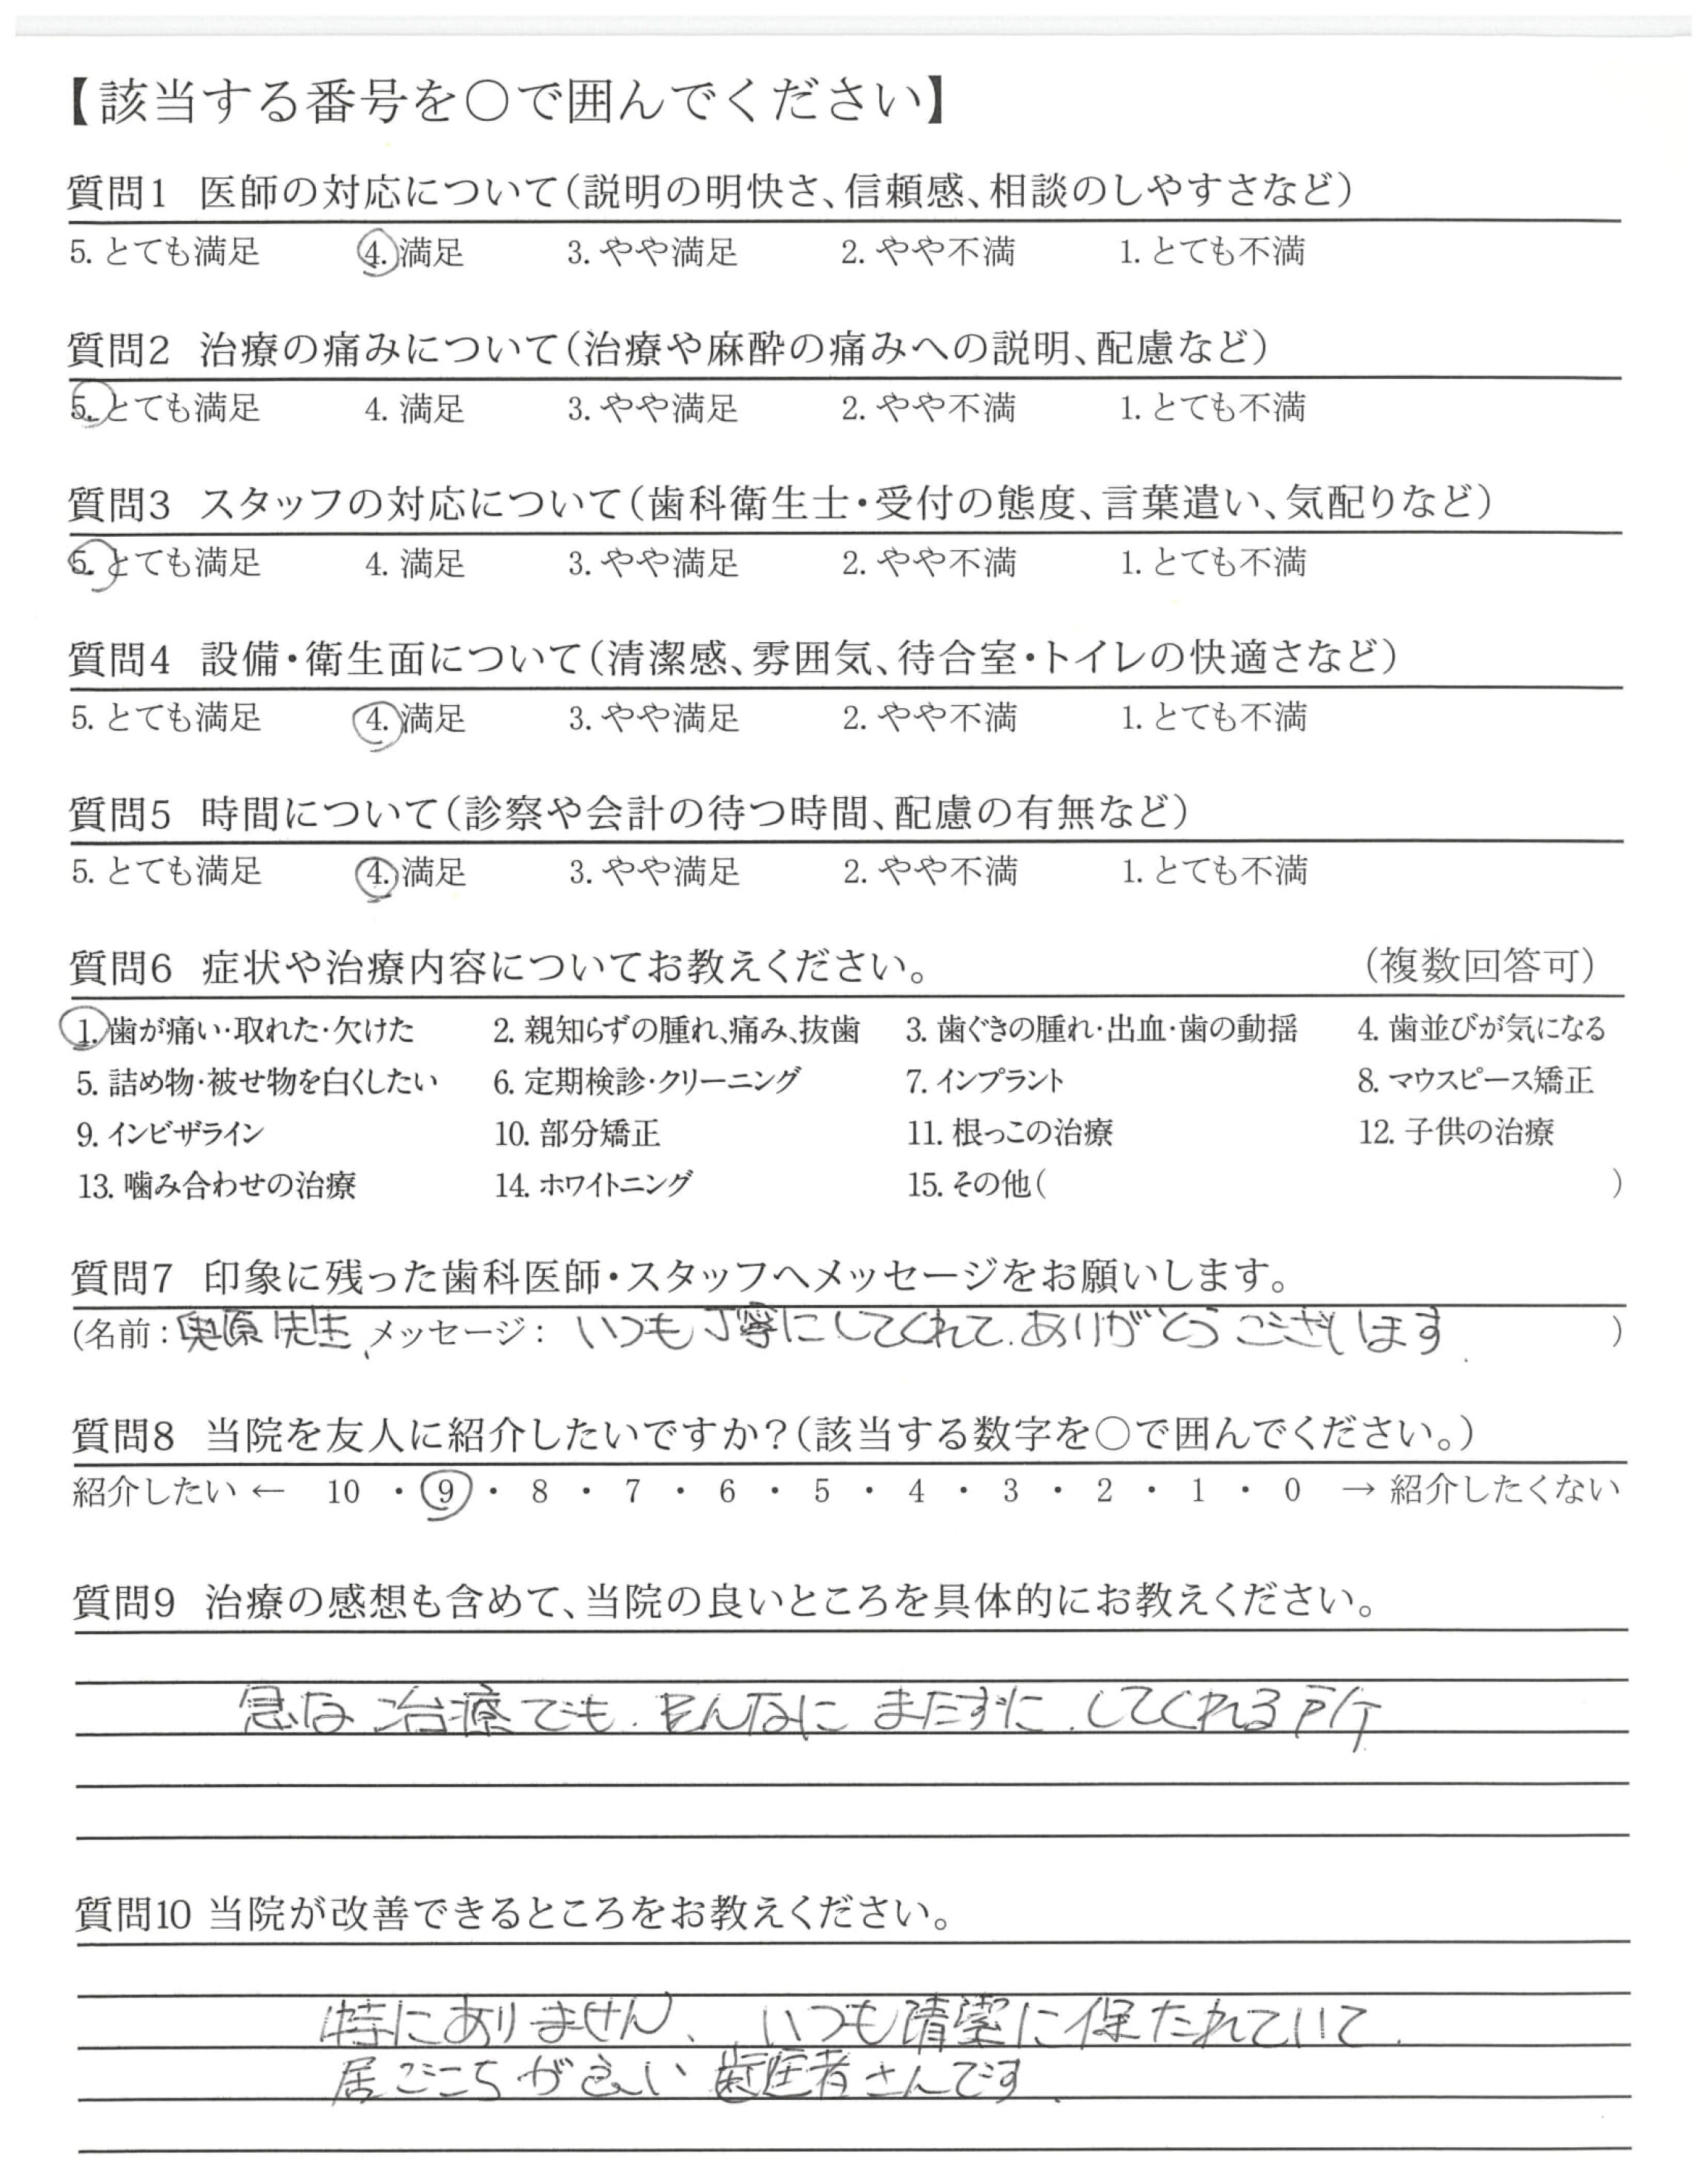 【該当する番号を○で囲んでください】
質問1 医師の対応について(説明の明快さ、信頼感、相談のしやすさなど)
5. とても満足 4. 満足 3. やや満足 2. やや不満 1. とても不満
質問2 治療の痛みについて(治療や麻酔の痛みへの説明、配慮など)
5. とても満足 4. 満足 3. やや満足 2. やや不満 1. とても不満
質問3 スタッフの対応について(歯科衛生士・受付の態度、言葉遣い、気配りなど)
5. とても満足 4. 満足 3. やや満足 2. やや不満 1. とても不満
質問4 設備・衛生面について(清潔感、雰囲気、待合室・トイレの快適さなど)
5. とても満足 4. 満足 3. やや満足 2. やや不満 1. とても不満
質問5 時間について(診察や会計の待つ時間、配慮の有無など)
5. とても満足 4. 満足 3. やや満足 2. やや不満 1. とても不満
質問6 症状や治療内容についてお教えください。 (複数回答可)
1. 歯が痛い・取れた・欠けた 2. 親知らずの腫れ、痛み、抜歯 3. 歯ぐきの腫れ・出血・歯の動揺 4. 歯並びが気になる
5. 詰め物・被せ物を白くしたい 6. 定期検診・クリーニング 7. インプラント 8. マウスピース矯正
9. インビザライン 10. 部分矯正 11. 根っこの治療 12. 子供の治療
13. 噛み合わせの治療 14. ホワイトニング 15. その他( )
質問7 印象に残った歯科医師・スタッフへメッセージをお願いします。
(名前: 奥原先生、メッセージ: いつも丁寧にしてくれて、ありがとうございます。 )
質問8 当院を友人に紹介したいですか?(該当する数字を○で囲んでください。)
紹介したい ← 10 ・ 9 ・ 8 ・ 7 ・ 6 ・ 5 ・ 4 ・ 3 ・ 2 ・ 1 ・ 0 → 紹介したくない
質問9 治療の感想も含めて、当院の良いところを具体的にお教えください。
急な治療でも、そんなにまたずに、してくれる所
質問10 当院が改善できるところをお教えください。
特にありません、いつも清潔に保たれていて、
居ごこちが良い歯医者さんです。